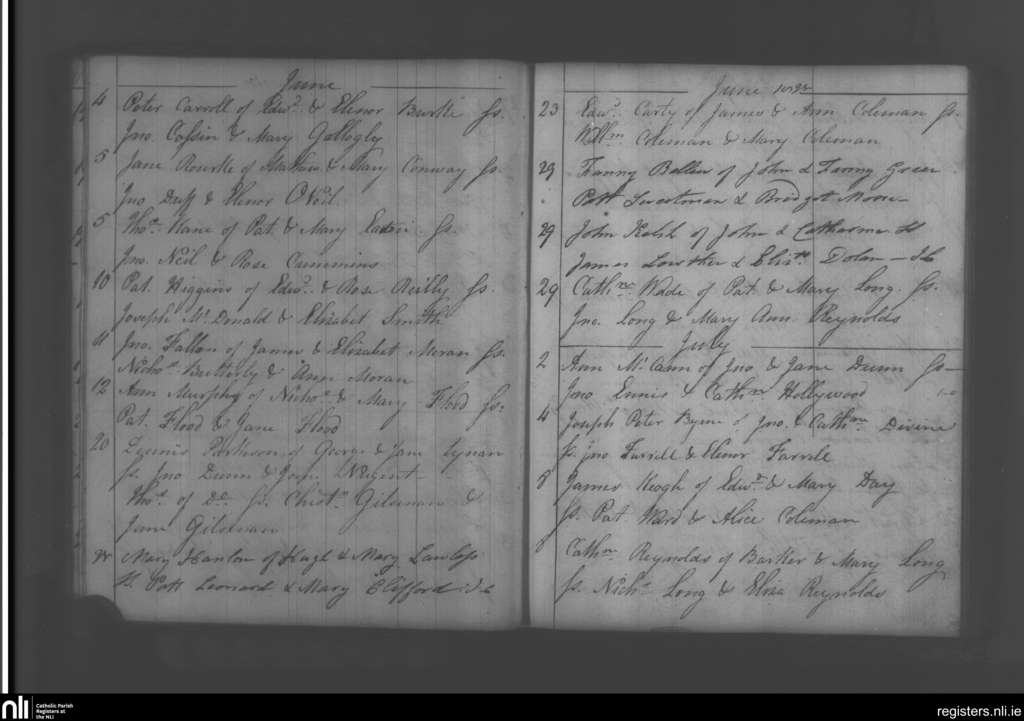 June
4 Peter Carroll of Edwd. & Elenor Burke Ss.
Jno. & Mary Gallogly
5 Jane Rourke of Mathew & Mary Conway Ss.
Jno Duff & Elenor O'Neil
5 Thos. Kane of Pat. & Mary Ss.
Jno. Neil & Rose Cummins
10 Pat. Higgins of Edwd. & Rose Reilly Ss.
Joseph McDonald & Elizabet Smith
11 Jno. Fallon of James & Elizabet Moran Ss.
Nichos. Butterly & Ann Moran
12 Ann Murphy of Nichos. & Mary Flood Ss.
Pat. Flood & Jane Flood
20 Parkinson of George & Jane Lynan
Ss. Jno Dunn & Nugent
Thos. of Do. Ss. Christn. Gilsenan &
Jane Gilsenan
Mary Hanlon of Hugh & Mary Lawless
Ss. Patt Leonard & Mary Clifford
June
23 Edwd. Carty of James & Ann Coleman Ss.
Willm Coleman & Mary Coleman
29 Fanny of John & Fanny Green
Patt Sweetman & Bridget Moore
29 John Kelsh of John & Catharine
James Lowther & Elizth. Dolan
29 Cathne Wade of Pat. & Mary Long. Ss.
Jno. Long & Mary Ann Reynolds
July
2 Ann McCann of Jno & Jane Dunn Ss
Jno Ennis & Cathne Hollywood
4 Joseph Peter Byrne of Jno. & Cathne Divine
Ss. Jno Farrell & Elenor Farrell
8 James Keogh of Edwd. & Mary Day
Ss. Pat Ward & Alice Coleman
8 Cathne Reynolds of Barker & Mary Long
Ss. Nichs. Long & Eliza Reynolds
nli Catholic Parish
Registers at
the NLI
registers.nli.ie